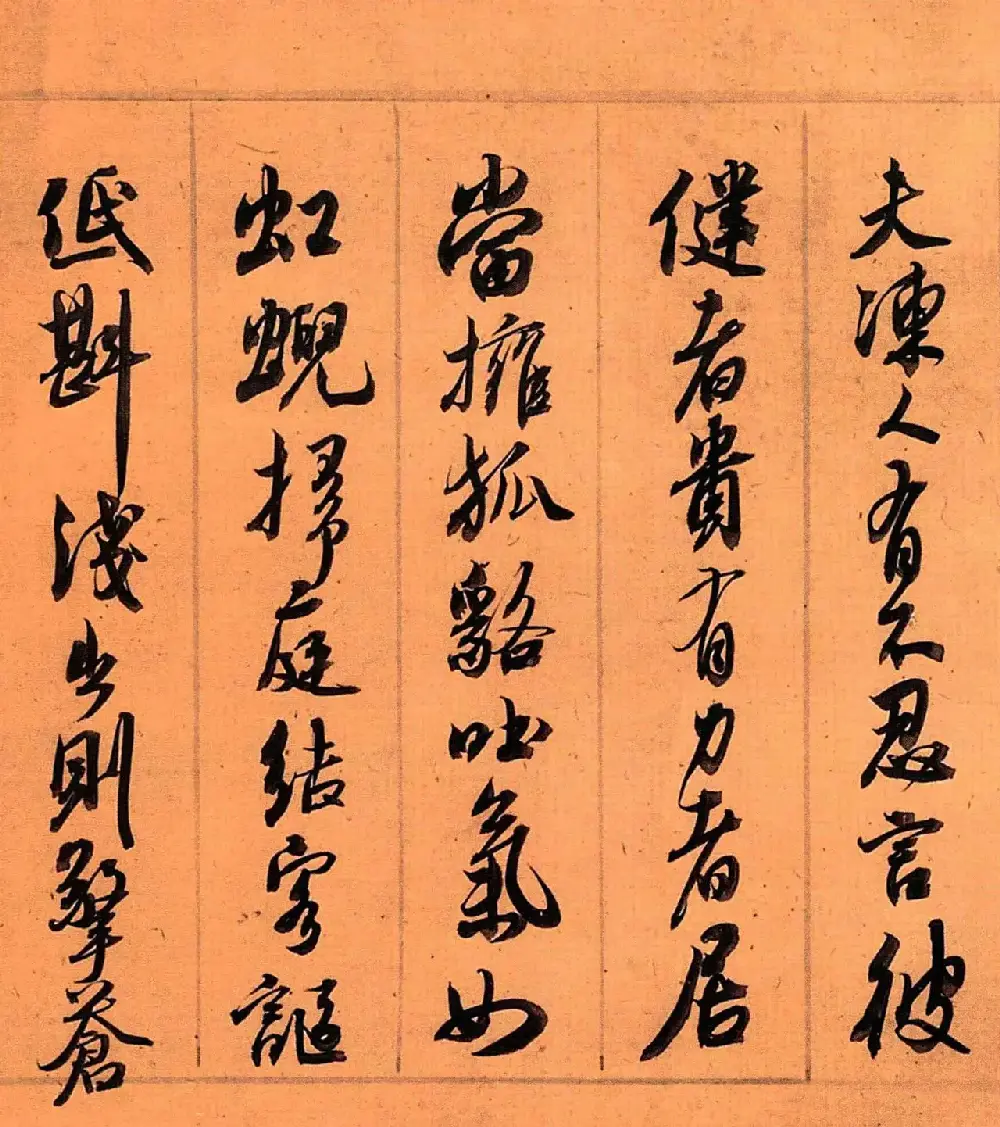 夫凍人有不忍言彼
健者貴有力者居
當擁狐貉吐氣如
虹蜺掃庭結客謳
低斟淺出則擎蒼